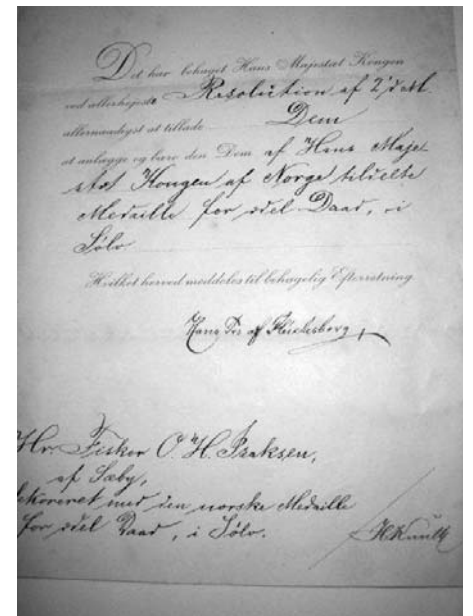 Det har behaget Hans Majestæt Kongen
ved allerhøjeste Resolution af 2' d. M.
allernaadigst at tillade Dem
at anlægge og bære den Dem af Hans Maje
stæt Kongen af Norge tildelte
Medaille for ædel Daad, i
Sølv.
Hvilket herved meddeles til behagelig Efterretning.
Hans af
Hr. Fisker O. H. Isaksen,
af Sæby,
dekoreret med den norske Medaille
for ædel Daad, i Sølv.